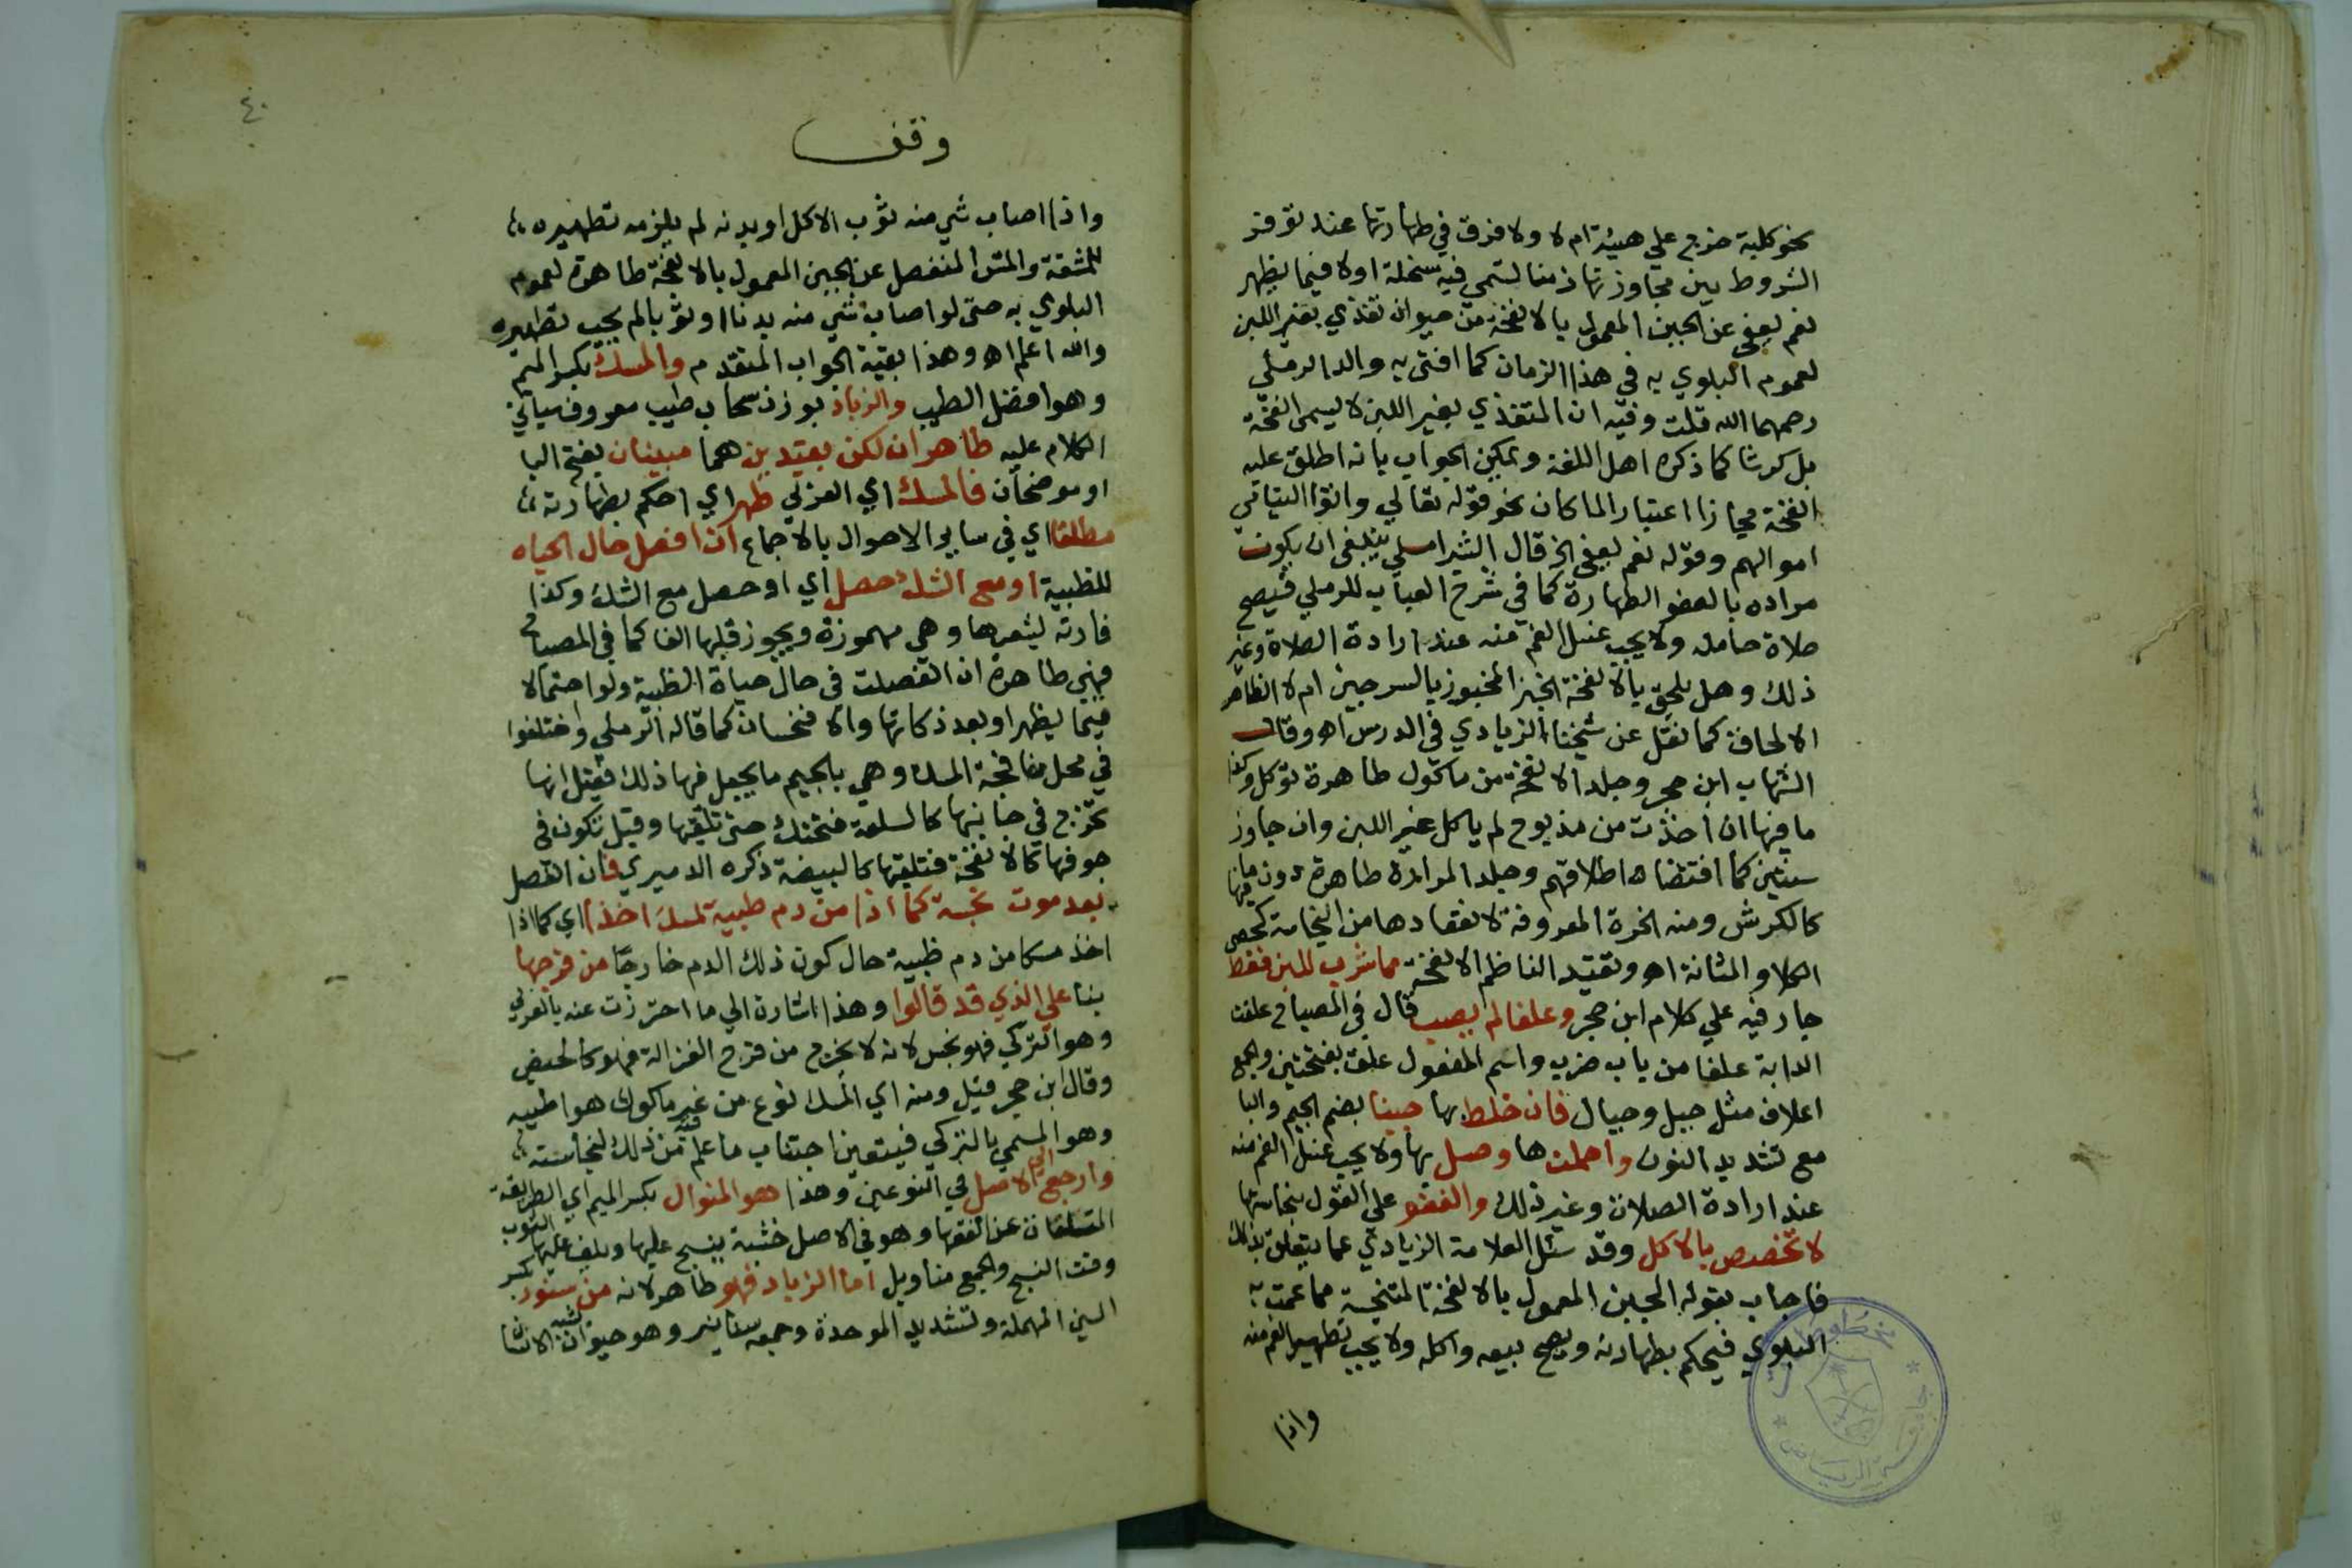 نحو كلية خرج علي هيئة ام لا ولا فرق في طهارتها عند توفر
الشروط بين مجاوزتها زمنا تسمي فيه سخلة اولا فيما يظهر
نعم يعفي عن الجبن المعمول بالانفحة من حيوان تغذي بغير اللبن
لعموم البلوي به في هذا الزمان كما افتي به والد الرملي
رحمهما الله قلت وفيه ان المتغذي بغير اللبن لا يسمي انفحة
بل كرشا كما ذكره اهل اللغة ويمكن الجواب بانه اطلق عليه
انفحة مجازا اعتبارا لما كان نحو قوله تعالي واتوا اليتامي
اموالهم وقوله نعم يعفي الخ قال الشبراملسي ينبغي ان يكون
مراده بالعفو الطهارة كما في شرح العباب للرملي فيصح
صلاة حامله ولا يجب غسل الفم منه عند ارادة الصلاة وغير
ذلك وهل يلحق بالانفحة الخبز المخبوز بالسرجين ام لا الظاهر
الالحاق كما نقل عن شيخنا الزيادي في الدرس اه وقال
الشهاب ابن حجر وجلد الانفحة من ماكول طاهرة تؤكل وكذا
ما فيها ان اخذت من مذبوح لم ياكل غير اللبن وان جاوز
سنتين كما اقتضاه اطلاقهم وجلد المرارة طاهرة دون ما فيها
كالكرش ومنه الخرزة المعروفة لانعقادها من النجاسة كحصي
الكلا والمثانة اه وتقييد الناظم الانفحة مما شرب للبن فقط
جار فيه علي كلام ابن حجر وعلفا لم يصب قال في المصباح علفت
الدابة علفا من باب ضرب واسم المعلوف علف بفتحتين والجمع
اعلاف مثل جبل وجبال فان خلط بها جبنا بضم الجيم والبا
مع تشديد النون واحملت ها وصل بها ولا يجب غسل الفم منه
عند ارادة الصلاة وغير ذلك والعفو علي القول بنجاستها
لا تخصص بالاكل وقد سئل العلامة الزيادي عما يتعلق بذلك
فاجاب بقوله الجبن المعمول بالانفحة المتنجسة مما عمت به
البلوي فيحكم بطهارته ويصح بيعه واكله ولا يجب تطهير الفم منه
واذا
٤٠
وقف
واذا اصاب شي منه ثوب الاكل او بدنه لم يلزمه تطهيره
للمشقة والمش المنفصل عن الجبن المعمول بالانفحة طاهرة لعموم
البلوي به حتى لو اصاب شي منه بدنا او ثوبا لم يجب تطهيره
والله اعلم اه وهذا بقية الجواب المتقدم والمسك بكسر الميم
وهو افضل الطيب والزباد بوزن سحاب طيب معروف سياتي
الكلام عليه طاهران لكن بقيدين هما مبينان بفتح اليا
او موضحان فالمسك اي الغزلي طهر اي احكم بطهارته
مطلقا اي في سائر الاحوال بالاجماع ان انفصل حال الحياه
للظبية او مع الشك حصل اي او حصل مع الشك وكذا
فارته لشعرها وهي مهموزة ويجوز قلبها الفا كما في المصباح
فهي طاهرة ان انفصلت في حال حياة الظبية ولو احتمالا
فيما يظهر او بعد ذكاتها والا فنجسان كما قاله الرملي واختلفوا
في محل نافجة المسك وهي بالجيم ما يجعل فيها ذلك فقيل انها
تخرج في جانبها كالسلعة فتحتك حتى تلقيها وقيل تكون في
جوفها كالانفحة فتلقيها كالبيضة ذكره الدميري فان انفصل
بعد موت نجسه كما اذا من دم ظبية لمسك اخذا اي كما اذا
اخذ مسكا من دم ظبية حال كون ذلك الدم خارجا من فرجها
بنا علي الذي قد قالوا وهذا اشارة الي ما احترزت عنه بالغزلي
وهو التركي فهو نجس لانه لا يخرج من فرج الغزالة فهو كالحيض
وقال ابن حجر قيل ومنه اي المسك نوع من غير ماكول هو اطيبه
وهو المسمي بالتركي فيتعين اجتناب ما علم فيه من ذلك لنجاسته
وارجع الي الاصل في النوعين وهذا هو المنوال بكسر الميم اي الطريقة
المتلقان عن الفقها وهو في الاصل خشبة ينسج عليها ويلف عليها الثوب
وقت النسج والجمع مناويل اما الزباد فهو طاهر لانه من سنور بكسر
السين المهملة وتشديد الموحدة وجمعه سنانير وهو حيوان شبه الانسان